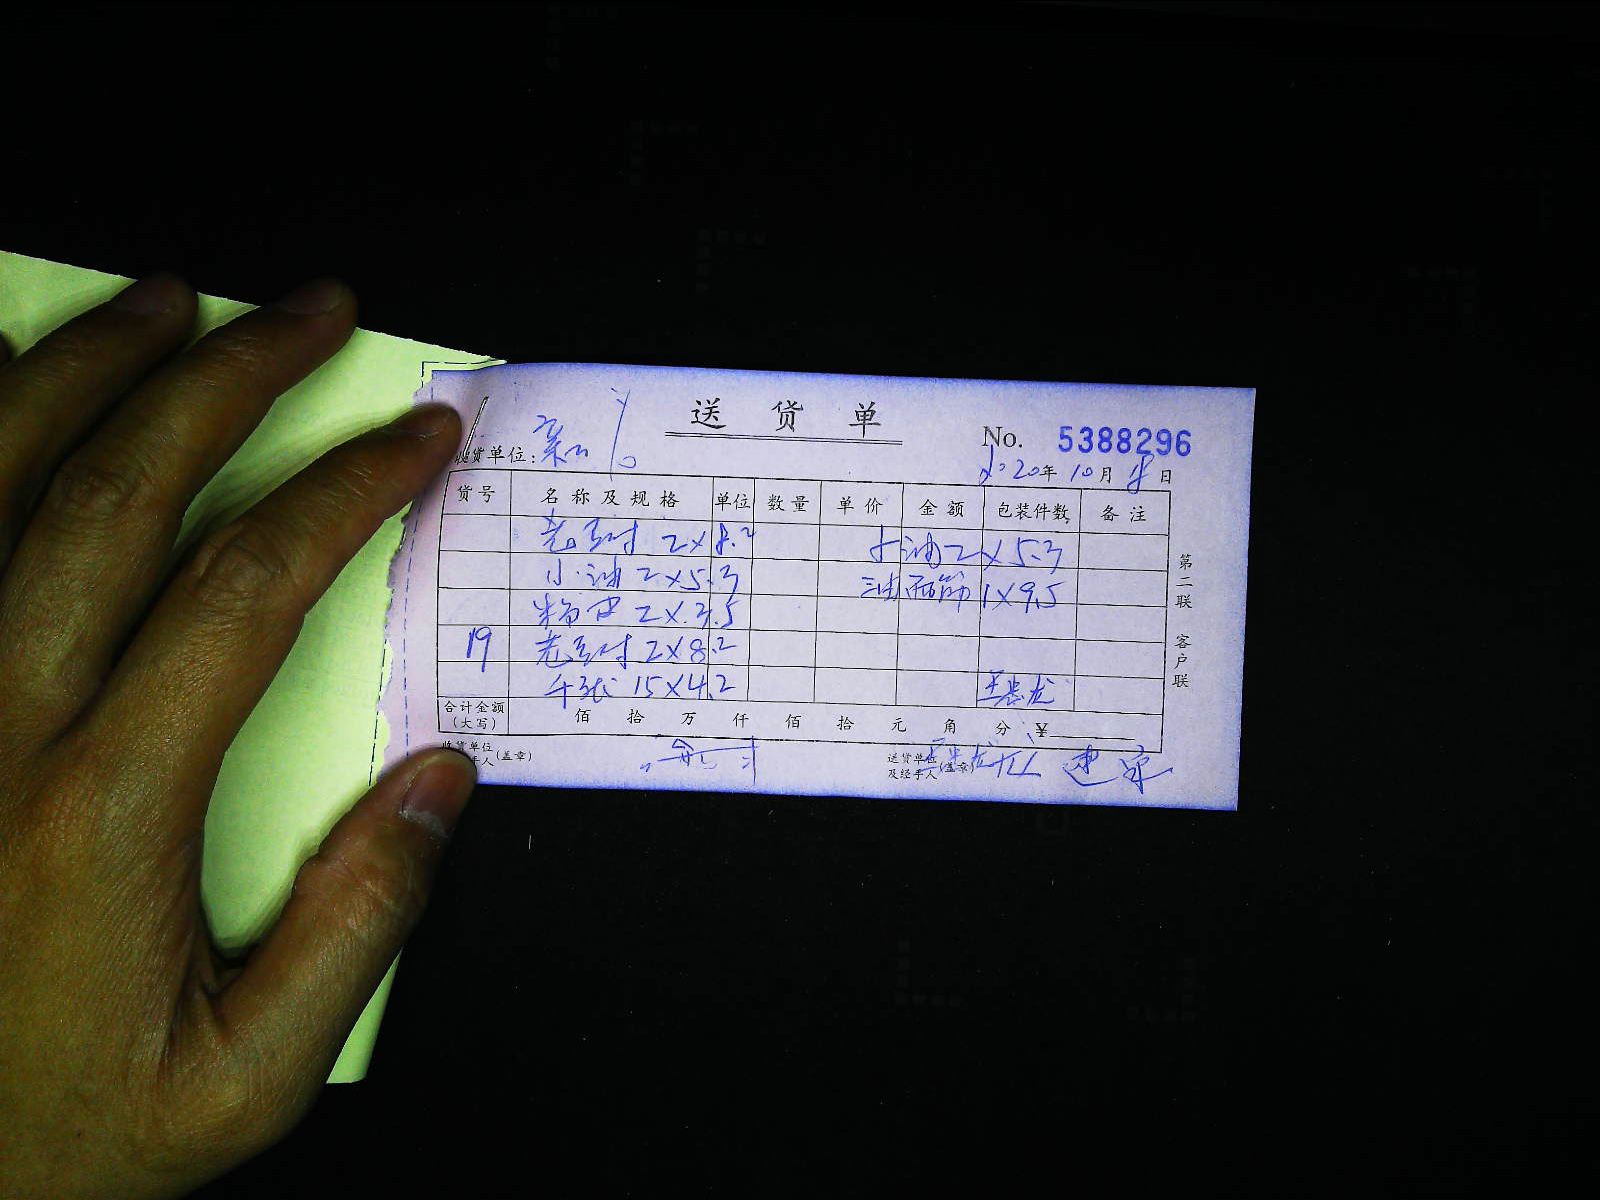 送货单
No. 5388296
收货单位:
2020年10月18日
货号 名称及规格 单位 数量 单价 金额 包装件数 备注
老豆付 2×8.2
小油 2×5.3
粉皮 2×3.5
19 老豆付 2×8.2
千张 15×4.2
小油 2×5.3
油面筋 1×9.5
王忠龙
合计金额(大写) 佰 拾 万 仟 佰 拾 元 角 分 ¥
收货单位
及经手人(盖章)
送货单位
及经手人(盖章)
第二联 客户联